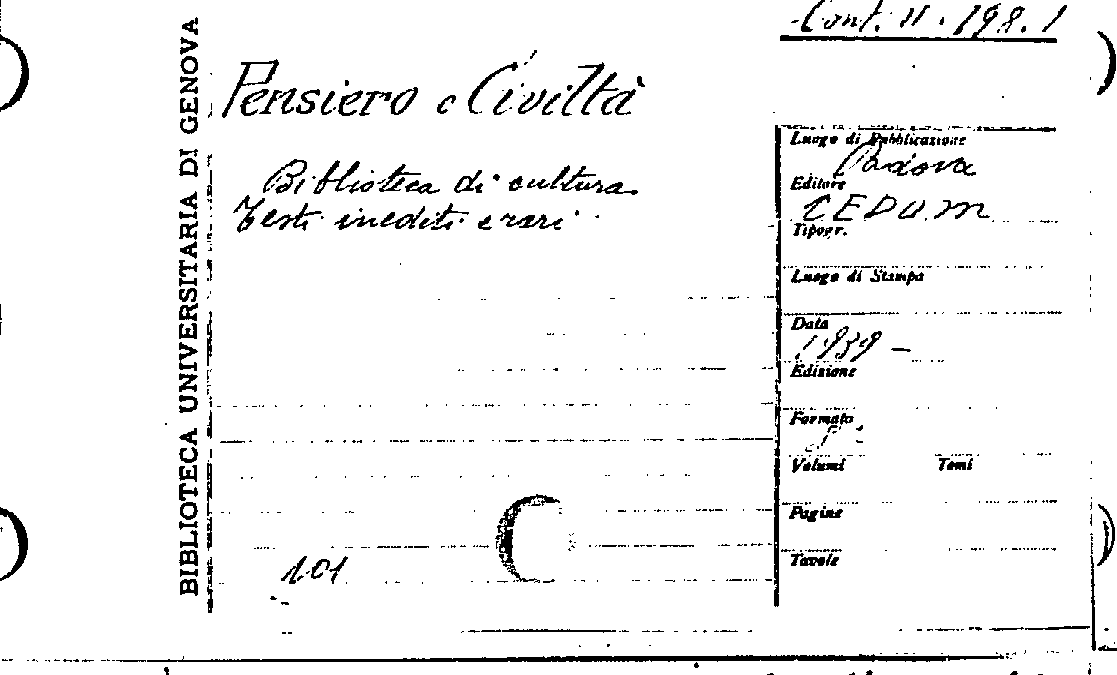 Cont. II. 198.1
BIBLIOTECA UNIVERSITARIA DI GENOVA
Pensiero e Civiltà
Biblioteca di cultura
Testi inediti e rari
Luogo di Pubblicazione
Padova
Editore
CEDAM
Tipogr.
Luogo di Stampa
Data
1939 -
Edizione
Formato
8°
Volumi Tomi
Pagine
Tavole
101